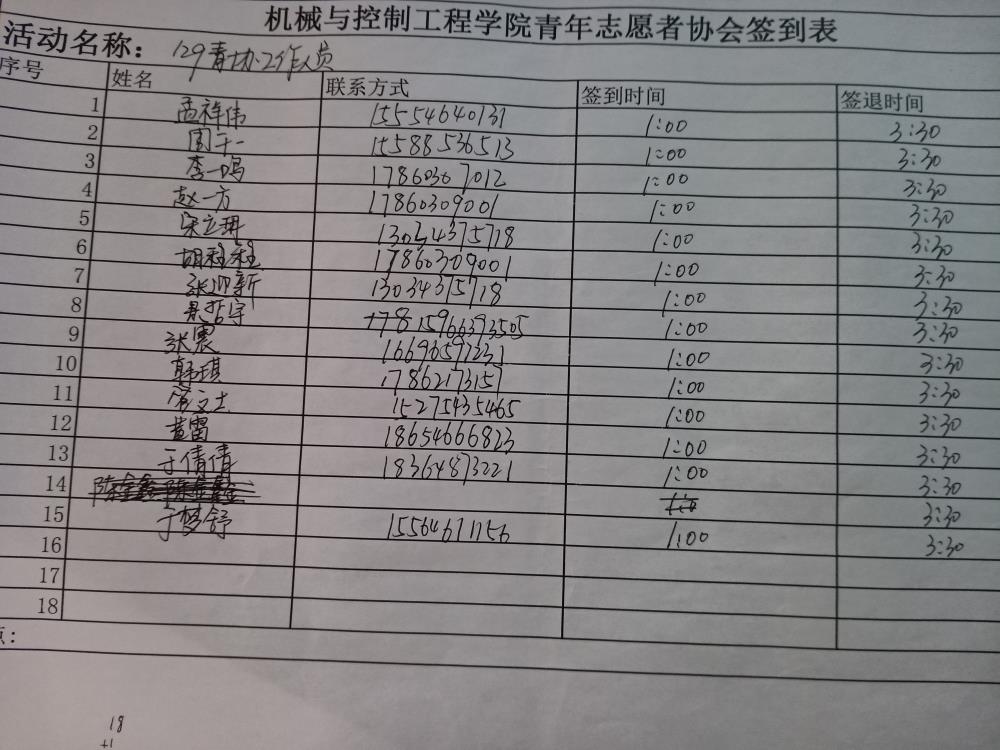 机械与控制工程学院青年志愿者协会签到表
活动名称： 129青协工作人员
序号 姓名 联系方式 签到时间 签退时间
1 孟祥伟 15554640131 1:00 3:30
2 周子一 15588536513 1:00 3:30
3 李一鸣 17860367012 1:00 3:30
4 赵一方 17860309001 1:00 3:30
5 宋立珊 13034375718 1:00 3:30
6 胡程程 17860309001 1:00 3:30
7 张迎新 13034375718 1:00 3:30
8 哲宇 1:00 3:30
9 张震 16696597231 1:00 3:30
10 韩琪 17862173157 1:00 3:30
11 文士 15275435465 1:00 3:30
12 黄雷 18654666823 1:00 3:30
13 于倩倩 18364873221 1:00 3:30
14 陈鑫鑫 陈鑫鑫 1:00 3:30
15 于梦舒 15564671156 1:00 3:30
16
17
18
：
18
+1